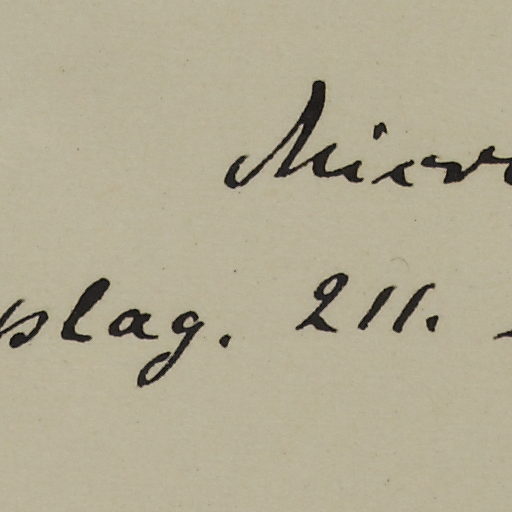 Micro
plag. 211.